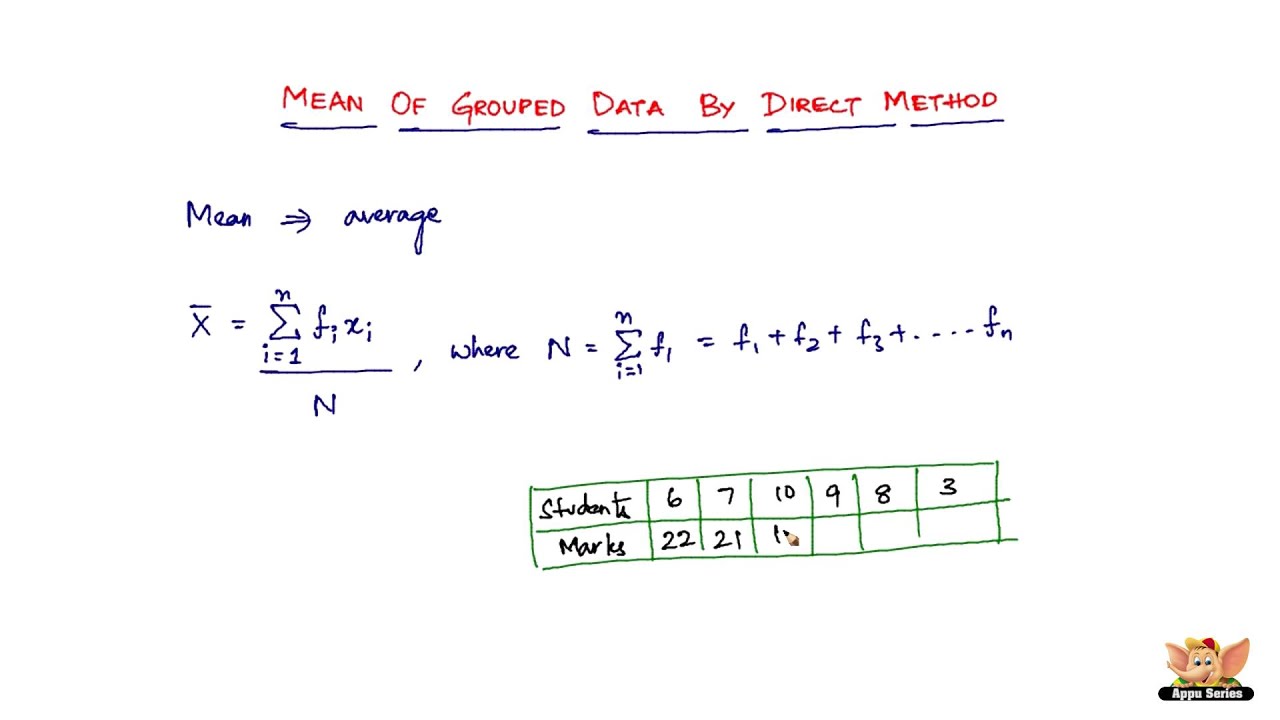 MEAN OF GROUPED DATA BY DIRECT METHOD
Mean ⇒ average
X̄ = ∑ᵢ₌₁ⁿ fᵢxᵢ / N , where N = ∑ᵢ₌₁ⁿ f₁ = f₁ + f₂ + f₃ + ..... fₙ
Students 6 7 10 9 8 3
Marks 22 21
Appu Series